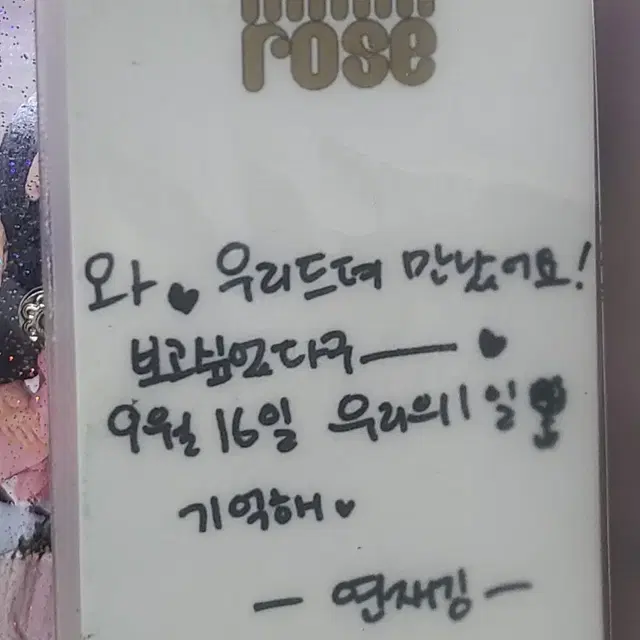 rose
와♥ 우리드뎌 만났어요!
보고싶었다구 ── ♥
9월 16일 우리의 1일
기억해♥
─ 연재킹 ─